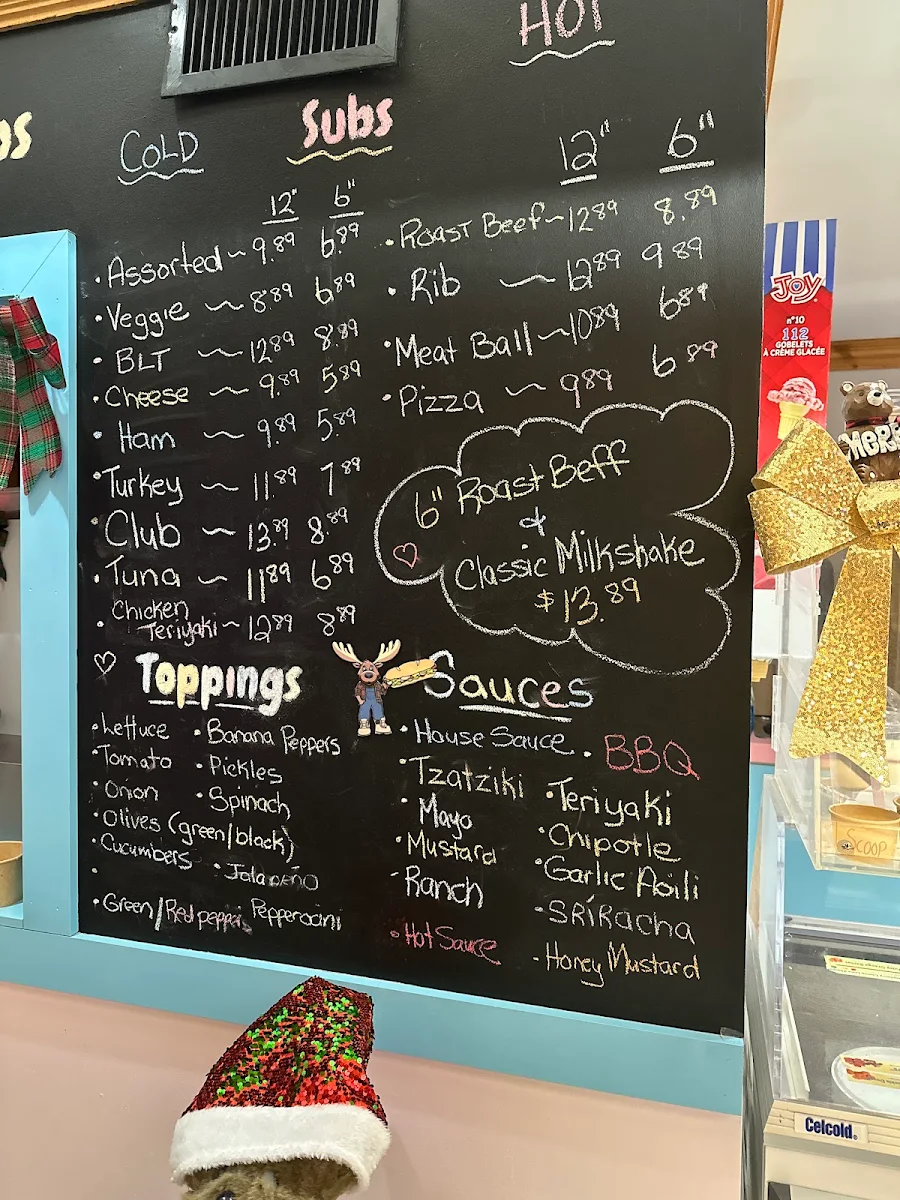 HOT
Subs
COLD
12" 6"
Assorted ~ 9.89 6.89
Veggie ~ 8.89 6.89
BLT ~ 12.89 8.89
Cheese ~ 9.89 5.89
Ham ~ 9.89 5.89
Turkey ~ 11.89 7.89
Club ~ 13.89 8.89
Tuna ~ 11.89 6.89
Chicken
Teriyaki ~ 12.89 8.89
12" 6"
Roast Beef ~ 12.89 8.89
Rib ~ 12.89 9.89
Meat Ball ~ 10.89 6.89
Pizza ~ 9.89 6.89
6" Roast Beff
&
Classic Milkshake
$13.89
Toppings
Lettuce
Tomato
Onion
Olives (green/black)
Cucumbers
Green/Red pepper
Banana Peppers
Pickles
Spinach
Jalapeño
Pepperocini
Sauces
House Sauce
Tzatziki
Mayo
Mustard
Ranch
Hot Sauce
BBQ
Teriyaki
Chipotle
Garlic Aoili
SRIRacha
Honey Mustard
JOY
n°10
112
GOBELETS
À CRÈME GLACÉE
SCOOP
Celcold